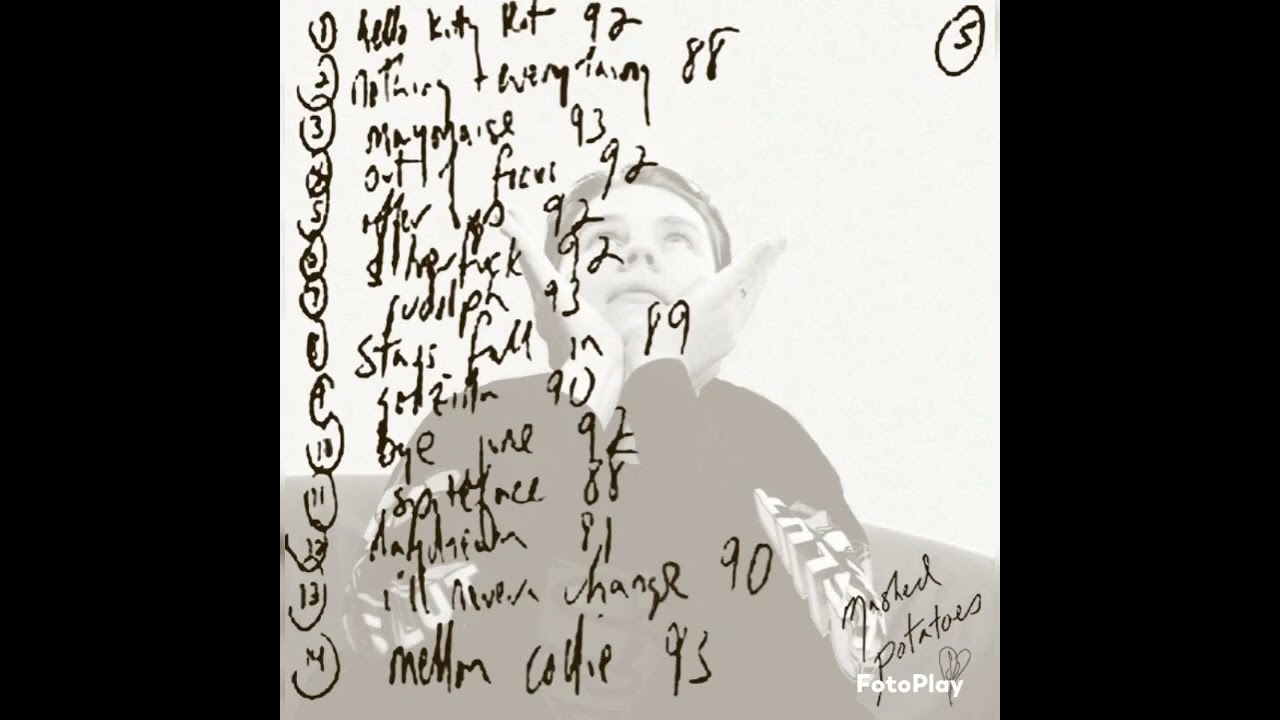 1 hello kitty kat 92
5
2 nothing + everything 88
3 mayonaise 93
4 out of focus 92
5 offer up 92
6 silverfuck 92
7 rudolph 93
8 stars fall in 89
9 godzilla 90
10 bye june 92
11 spiteface 88
12 daydream 81
13 i'll never change 90
14 mellon collie 93
Mashed
potatoes
FotoPlay